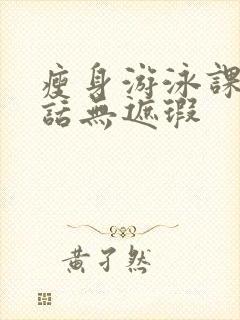 瘦身游泳課
話無遮瑕
黃孑然